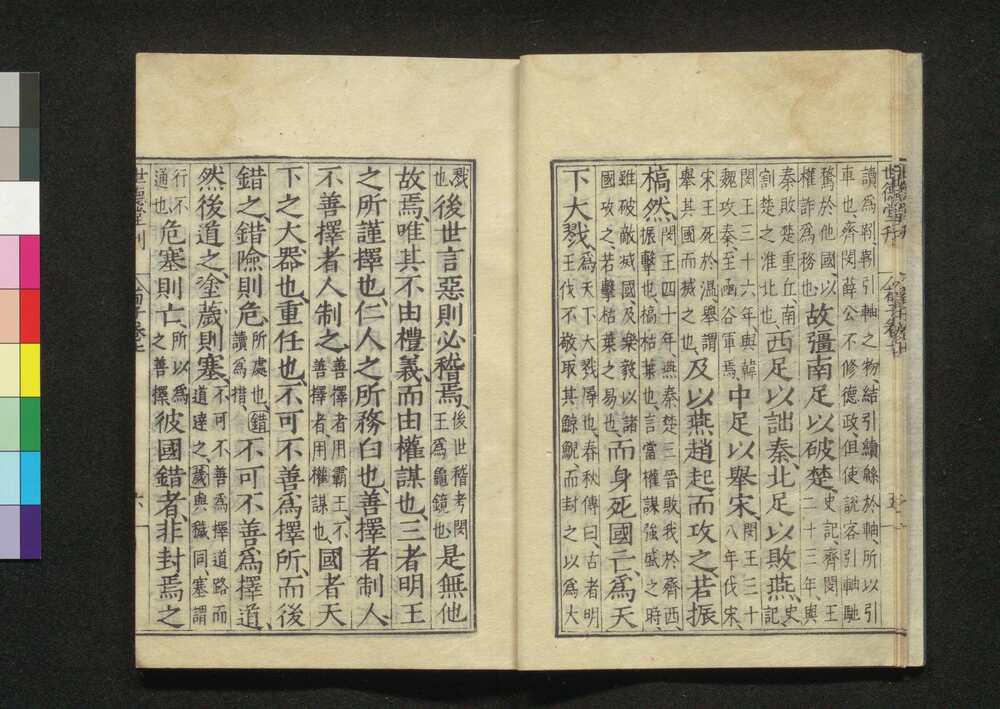 讀爲靷、靷引軸之物、結引續緜於軸、所以引
車也、齊閔薛公不修德政但使說客引軸馳
騖於他國、以
權詐爲務也
故彊南足以破楚、
史記、齊閔王
二十三年、與
秦敗楚重丘、南
割楚之淮北也、
西足以詘秦、北足以敗燕、
史
記
閔王三十六年、與韓
魏攻秦、至函谷軍焉、
中足以舉宋、
閔王三十
八年伐宋、
宋王死於溫、舉謂
舉其國而滅之也、
及以燕趙起而攻之、若振
槁然、
閔王四十年、燕秦楚三晉敗我於齊西、
振擊也、槁枯葉也、言當權謀強盛之時、
雖破敵滅國、及樂毅以諸
國攻之、若擊枯葉之易也、
而身死國亡、爲天
下大戮、
爲天下大戮辱也、春秋傳曰、古者明
王伐不敬取其鯨鯢、而封之以爲大
世德堂刊
戮
也、
後世言惡則必稽焉、
後世稽考閔
王爲龜鏡也
是無他
故焉、唯其不由禮義、而由權謀也、三者明王
之所謹擇也、仁人之所務白也、善擇者制人、
不善擇者人制之、
善擇者用霸王、不
善擇者用權謀也、
國者天
下之大器也、重任也、不可不善爲擇所、而後
錯之、錯險則危、
所處也、錯
讀爲措、
不可不善爲擇道、
然後道之、塗薉則塞、
不可不善爲擇道路而
道達之、薉與穢同、塞謂
行不
通也、
危塞則亡、
所以爲
之善擇
彼國錯者、非封焉之
世德堂刊